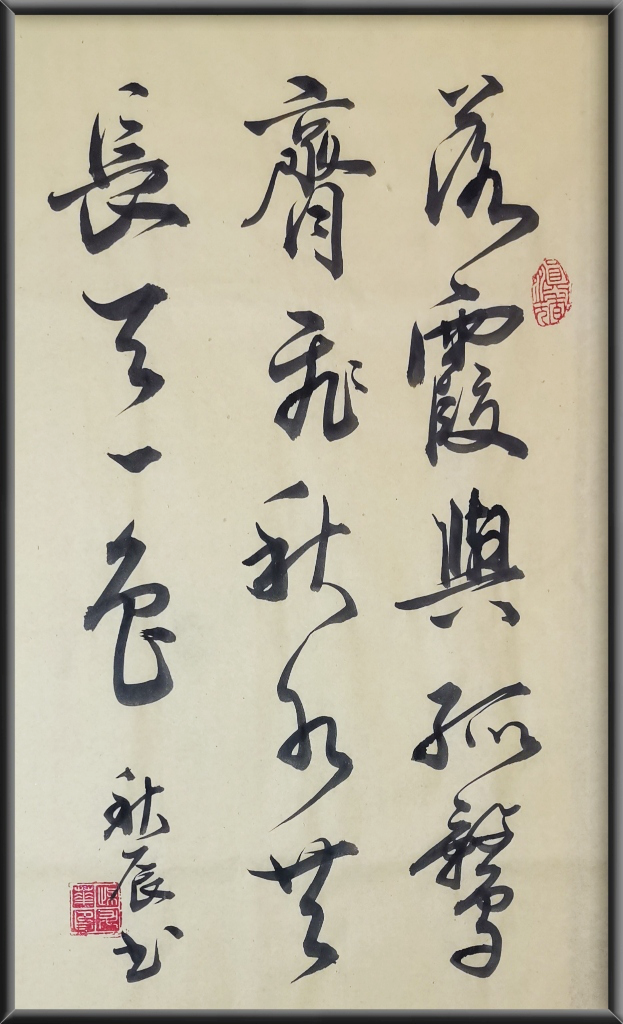 落霞與孤鶩
齊飛秋水共
長天一色
秋辰书